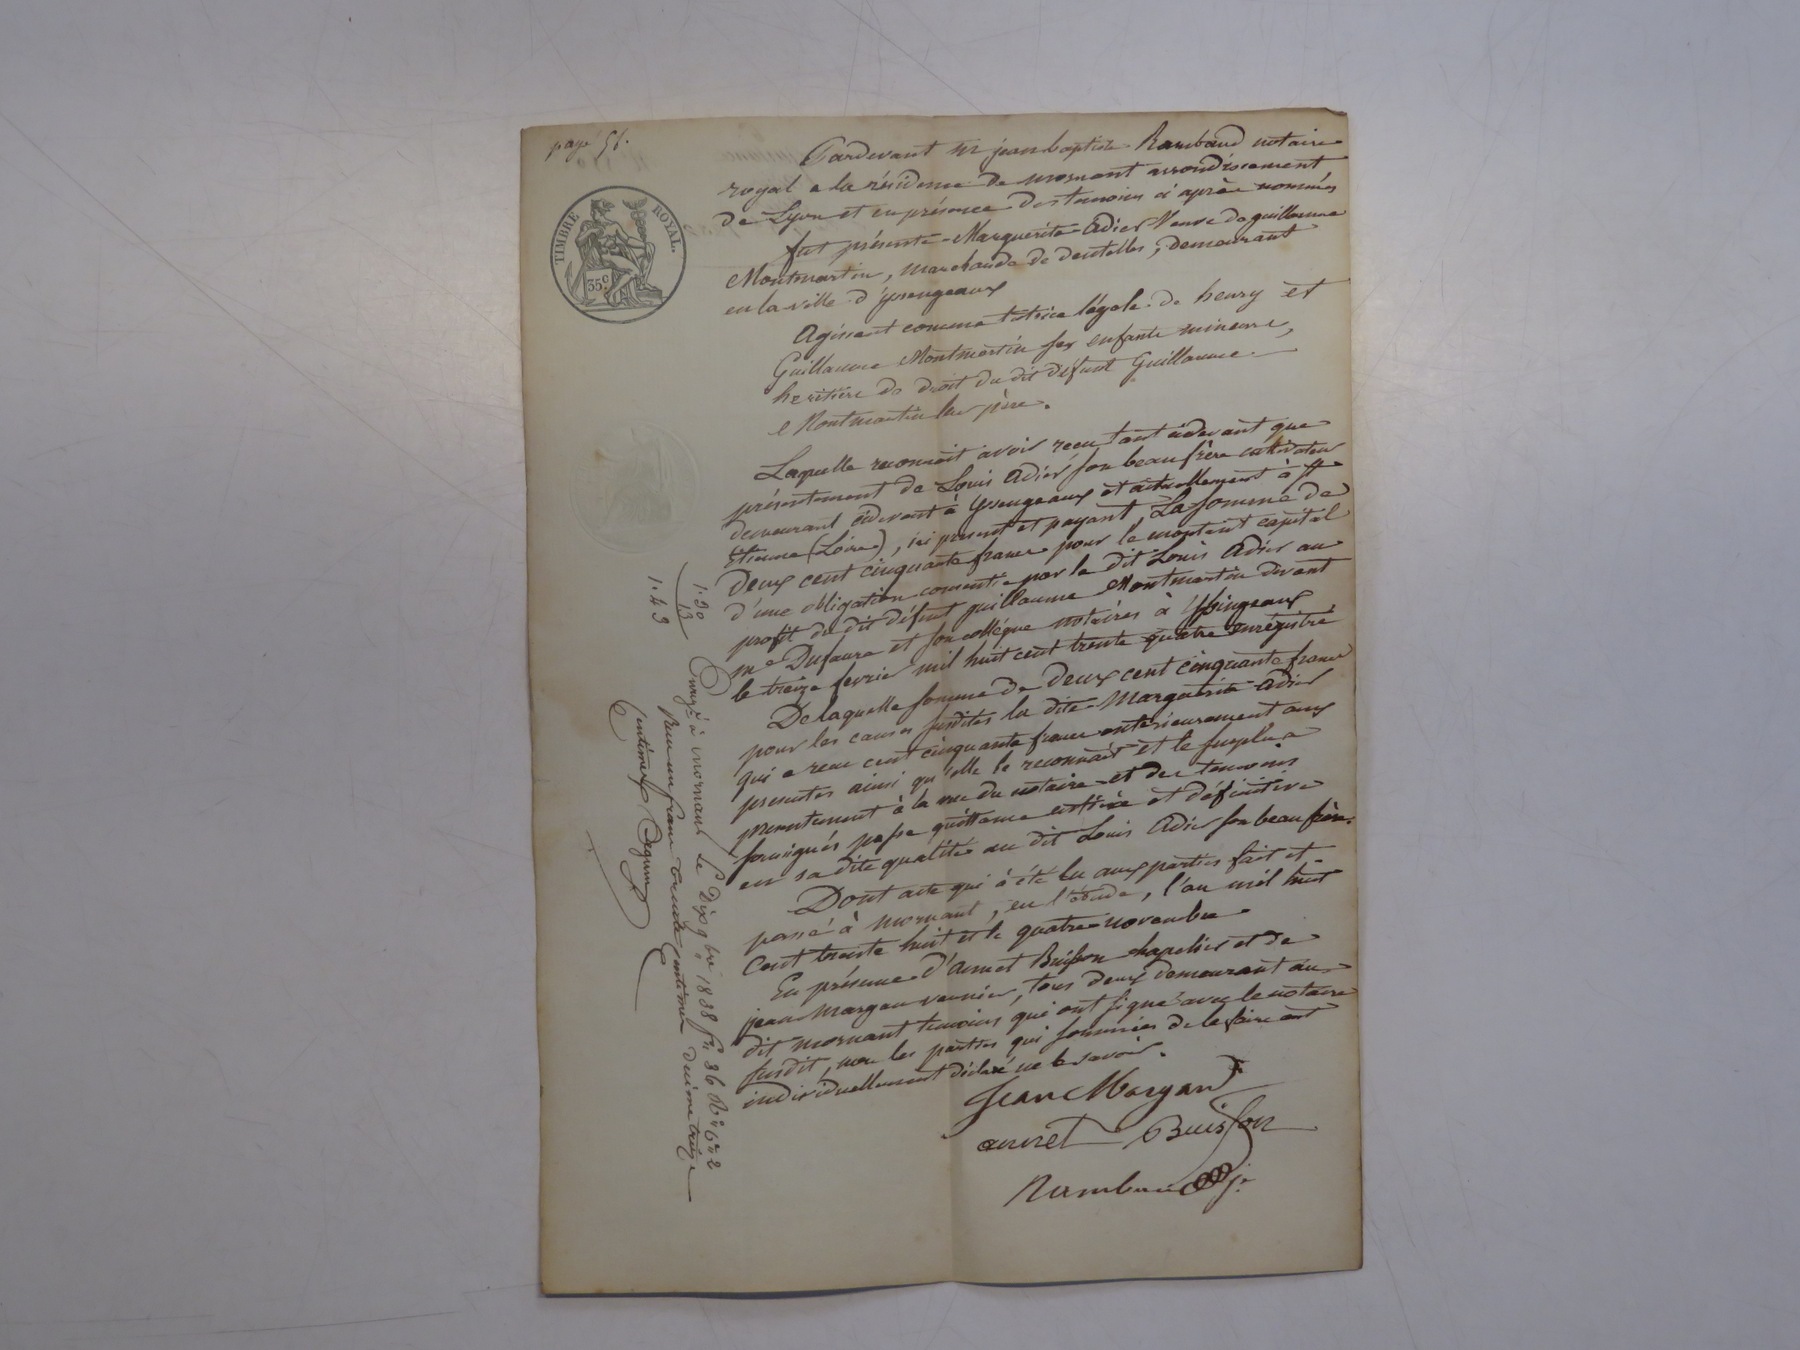 payé 5f.
TIMBRE ROYAL.
35c.
Pardevant Me jean baptiste Rambaud notaire
royal a la résidence de mornant arrondissement
de Lyon et en présence des temoins ci après nommés
fut présente Marguerite Adier Veuve de guillaume
Montmartin, marchande de dentelles, demeurant
en la ville d'yssengeaux
Agissant comme tutrice légale de henry et
Guillaume Montmartin ses enfants mineurs,
heritiers de droit du dit défunt Guillaume
Montmartin leur père.
Laquelle reconnait avoir reçu tant cidevant que
présentement de Louis Adier son beau frère cultivateur
demeurant cidevant à yssengeaux et actuellement à St
Etienne (Loire), ici present et payant, La somme de
Deux cent cinquante francs pour le montant capital
d'une obligation consentie par le dit Louis Adier au
profit du dit défunt guillaume Montmartin devant
me Dufaure et son collégue notaires à yssingeaux,
le treize fevrier mil huit cent trente quatre enregistré
De laquelle somme de Deux cent cinquante francs
pour les causes susdites la dite Marguerite Adier
qui a reçu cent cinquante francs antérieurement aux
presentes ainsi qu'elle le reconnait et le surplus
presentement à la vue du notaire et des temoins
soussignés passe quittance entière et définitive
en sa dite qualité au dit Louis Adier son beau frère.
Dont acte qui à été lu aux parties fait et
passé à mornant, en l'étude, l'an mil huit
Cent trente huit et le quatre novembre
En présence d'annet Buisson chapelier et de
jean Margan vannier, tous deux demeurant au
dit mornant temoins qui ont signé avec le notaire
susdit, non les parties qui sommées de le faire ont
individuellement déclaré ne le savoir.
Jean Margand
annet Buisson
Rambaud je
1:30
13
1:43
Enregté à mornant le Dix 9bre 1838 fo 36 Ro
Reçu un franc trente centimes dixime treize
Centimes